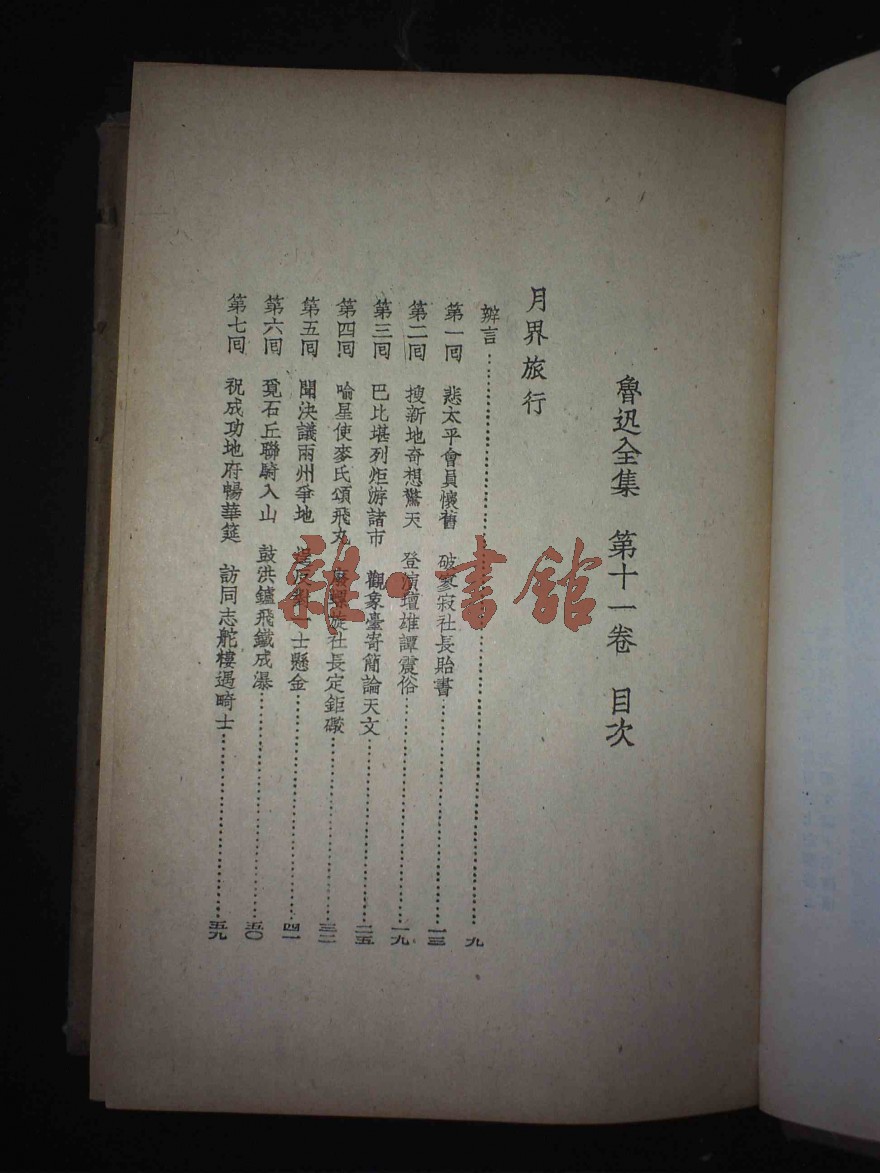 魯迅全集 第十一卷 目次
月界旅行
辨言………九
第一回 悲太平會員懷舊 破寥寂社長貽書………一三
第二回 搜新地奇想驚天 登演壇雄譚震俗………一九
第三回 巴比堪列炬游諸市 觀象臺寄簡論天文………二五
第四回 喻星使麥氏頌飛丸 廢螺旋社長定鉅礮………三二
第五回 聞決議兩州爭地 反對一士懸金………四一
第六回 覓石丘聯騎入山 鼓洪鑪飛鐵成瀑………五〇
第七回 祝成功地府暢華筵 訪同志舵樓遇畸士………五九
雜·書館